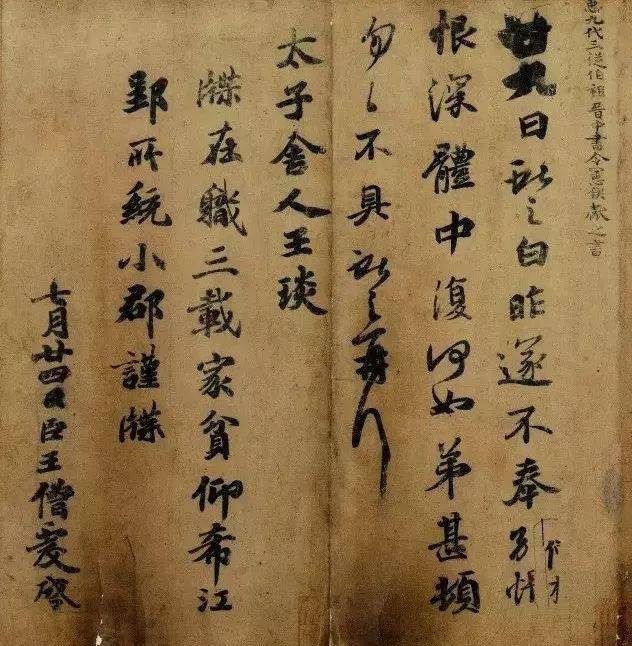 𢘑九代三從伯祖晉中書令憲侯獻之書
廿九日獻之白昨遂不奉別悵
恨深體中復何如弟甚頓
匆〻不具獻之再拜
太子舍人王琰
牒在職三載家貧仰希江
郢所統小郡謹牒
七月廿四日臣王僧虔啓